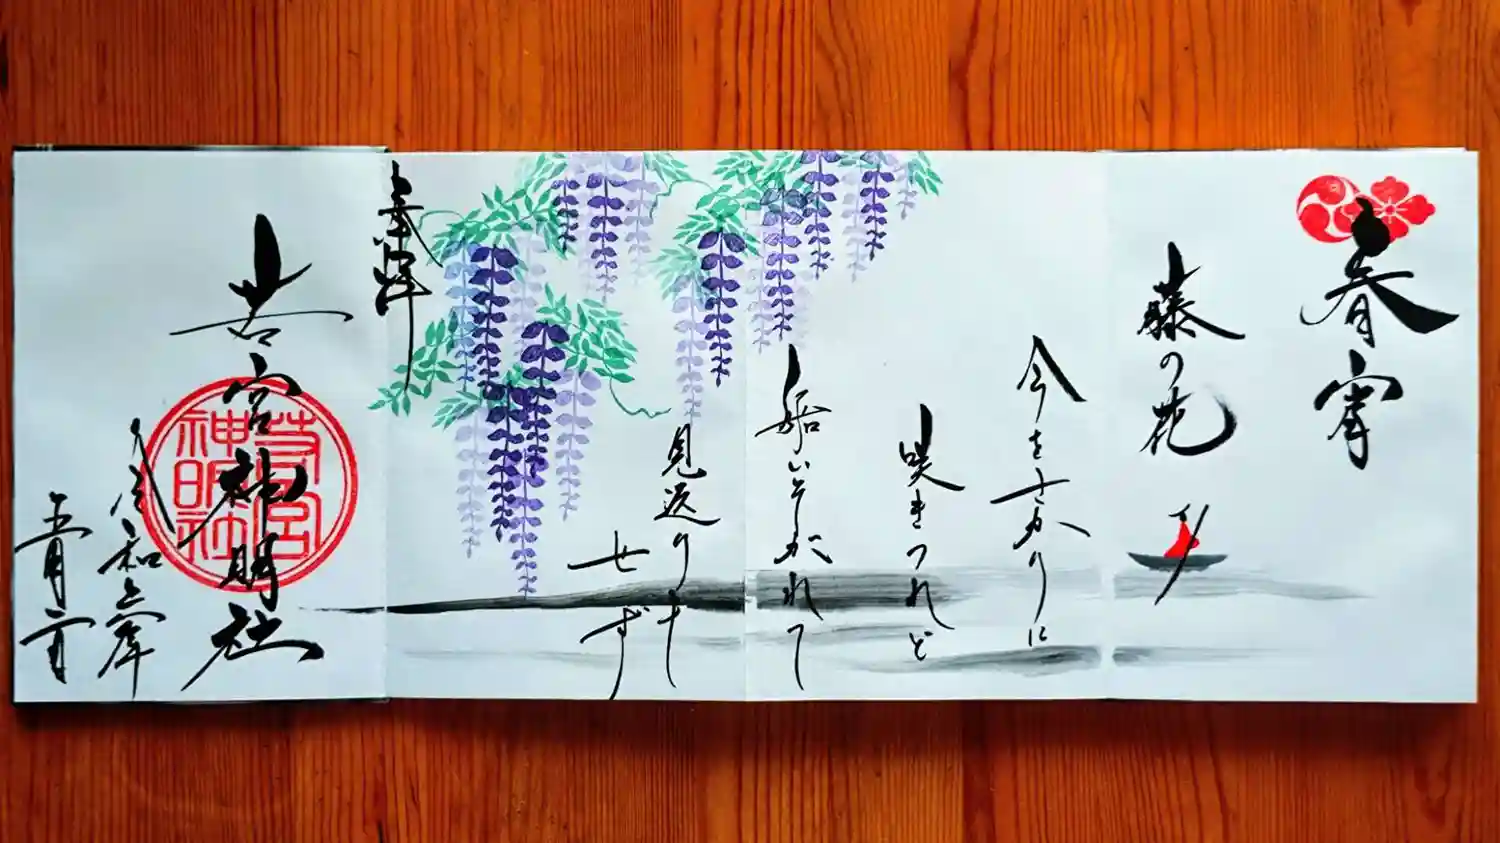 藤の花
今をさかりに
咲きつれど
船いそがれて
見返りも
せず
奉拝
若宮神明社
若宮神明社
令和六年
五月二日